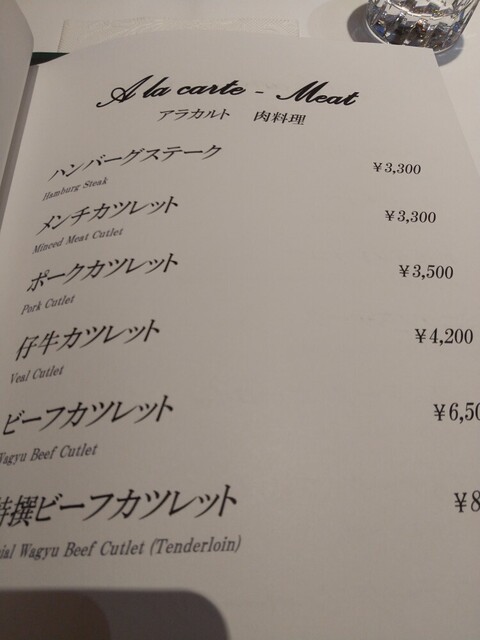 A la carte - Meat
アラカルト 肉料理
ハンバーグステーク ¥3,300
Hamburg Steak
メンチカツレット ¥3,300
Minced Meat Cutlet
ポークカツレット ¥3,500
Pork Cutlet
仔牛カツレット ¥4,200
Veal Cutlet
ビーフカツレット ¥6,50
Wagyu Beef Cutlet
特撰ビーフカツレット ¥8
ial Wagyu Beef Cutlet (Tenderloin)